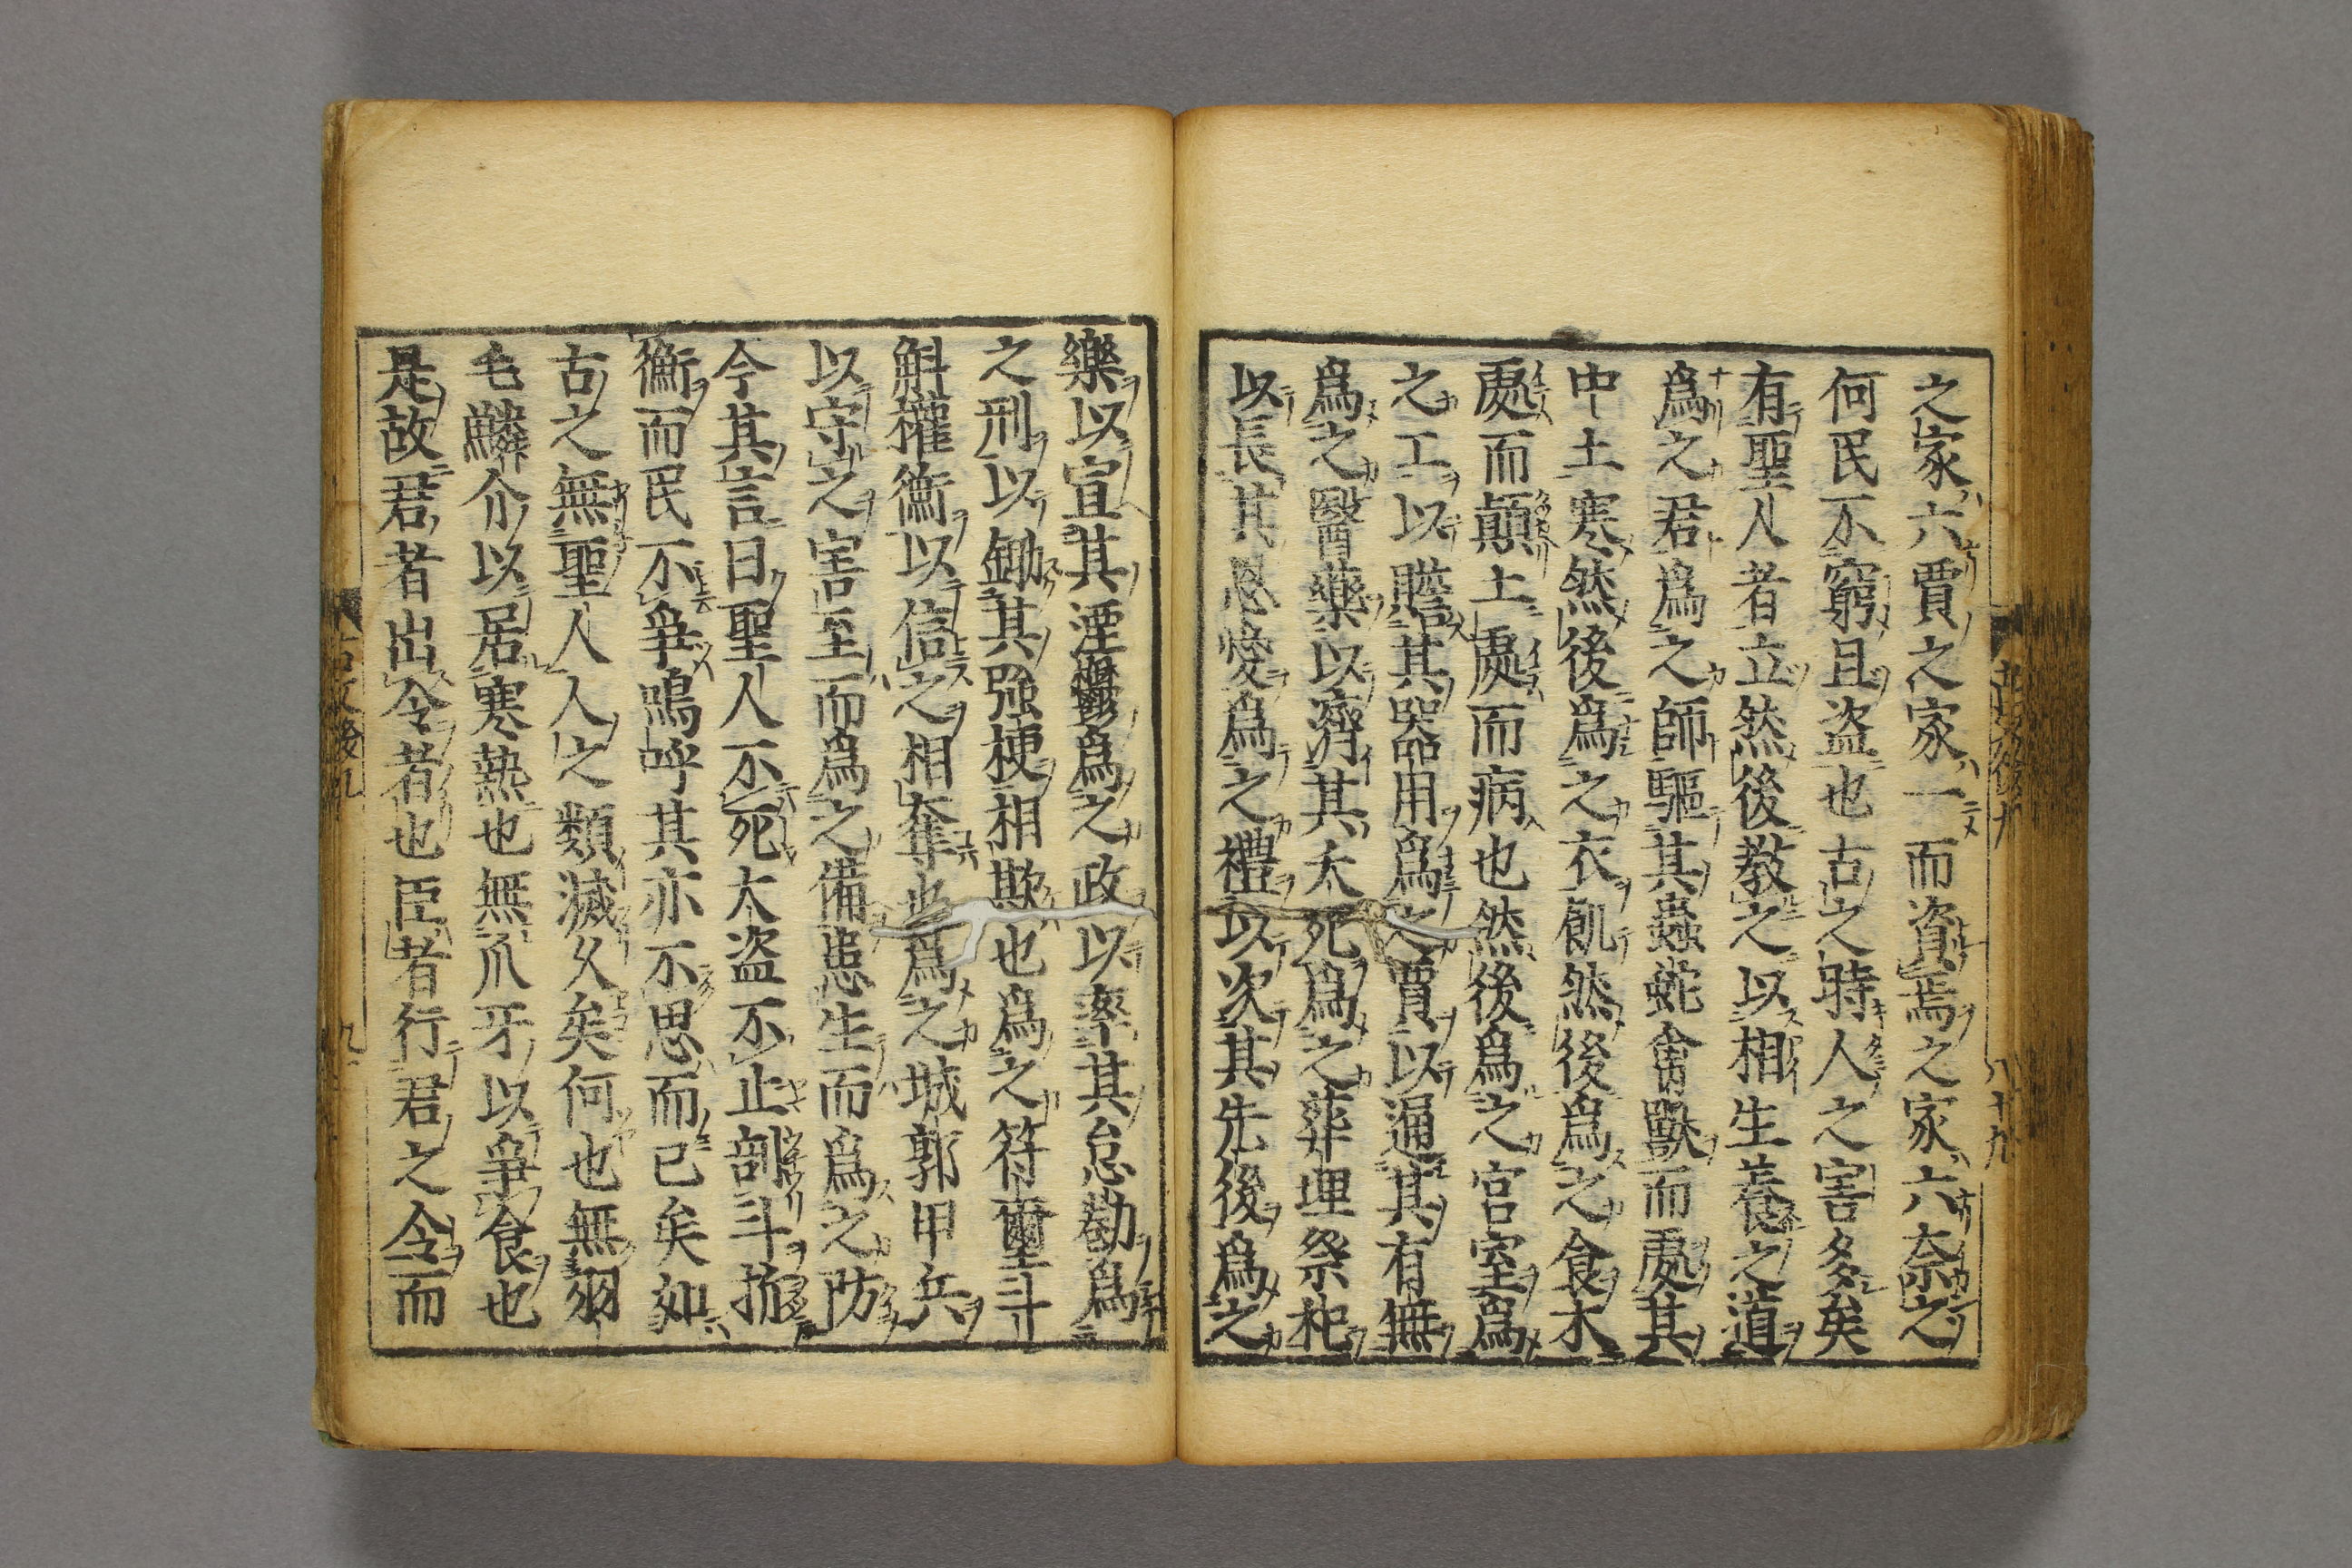 之家六賈之家一而資焉之家六奈之
何民不窮且盗也古之時人之害多矣
有聖人者立然後敎之以相生養之道
爲之君爲之師驅其蟲蛇禽獸而處其
中土寒然後爲之衣飢然後爲之食木
處而顚土處而病也然後爲之宮室爲
之工以贍其器用爲之賈以通其有無
爲之醫藥以濟其夭死爲之葬埋祭祀
以長其恩愛爲之禮以次其先後爲之
樂以宣其湮鬱爲之政以率其怠勸爲
之刑以鋤其强梗相欺也爲之符璽斗
斛權衡以信之相奪也爲之城郭甲兵
以守之害至而爲之備患生而爲之防
今其言曰聖人不死大盗不止剖斗折
衡而民不爭嗚呼其亦不思而已矣如
古之無聖人人之類滅久矣何也無羽
毛鱗介以居寒熱也無爪牙以爭食也
是故君者出令者也臣者行君之令而